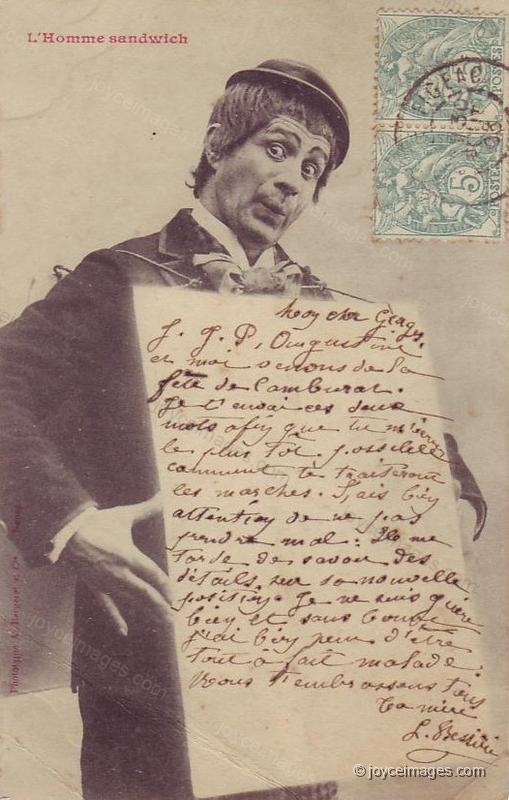 L'Homme sandwich
FRANÇAISE
POSTES
5c
POSTES
FIGEAC
Mon cher
J. J. P. Augustine
et moi venons de la
fête de
Je t'envoi ces deux
mots afin que tu m'écrive
le plus tôt possible
comment te traiteront
les marches. Fais bien
attention de ne pas
prendre mal: Il me
tarde de savoir des
détails, sur ta nouvelle
position Je ne suis guère
bien et sans
j'ai bien peur d'être
tout à fait malade.
Nous t'embrassons tous
Ta mère
L.
Phototypie A. Bergeret & Cie Nancy
joyceimages.com
© joyceimages.com